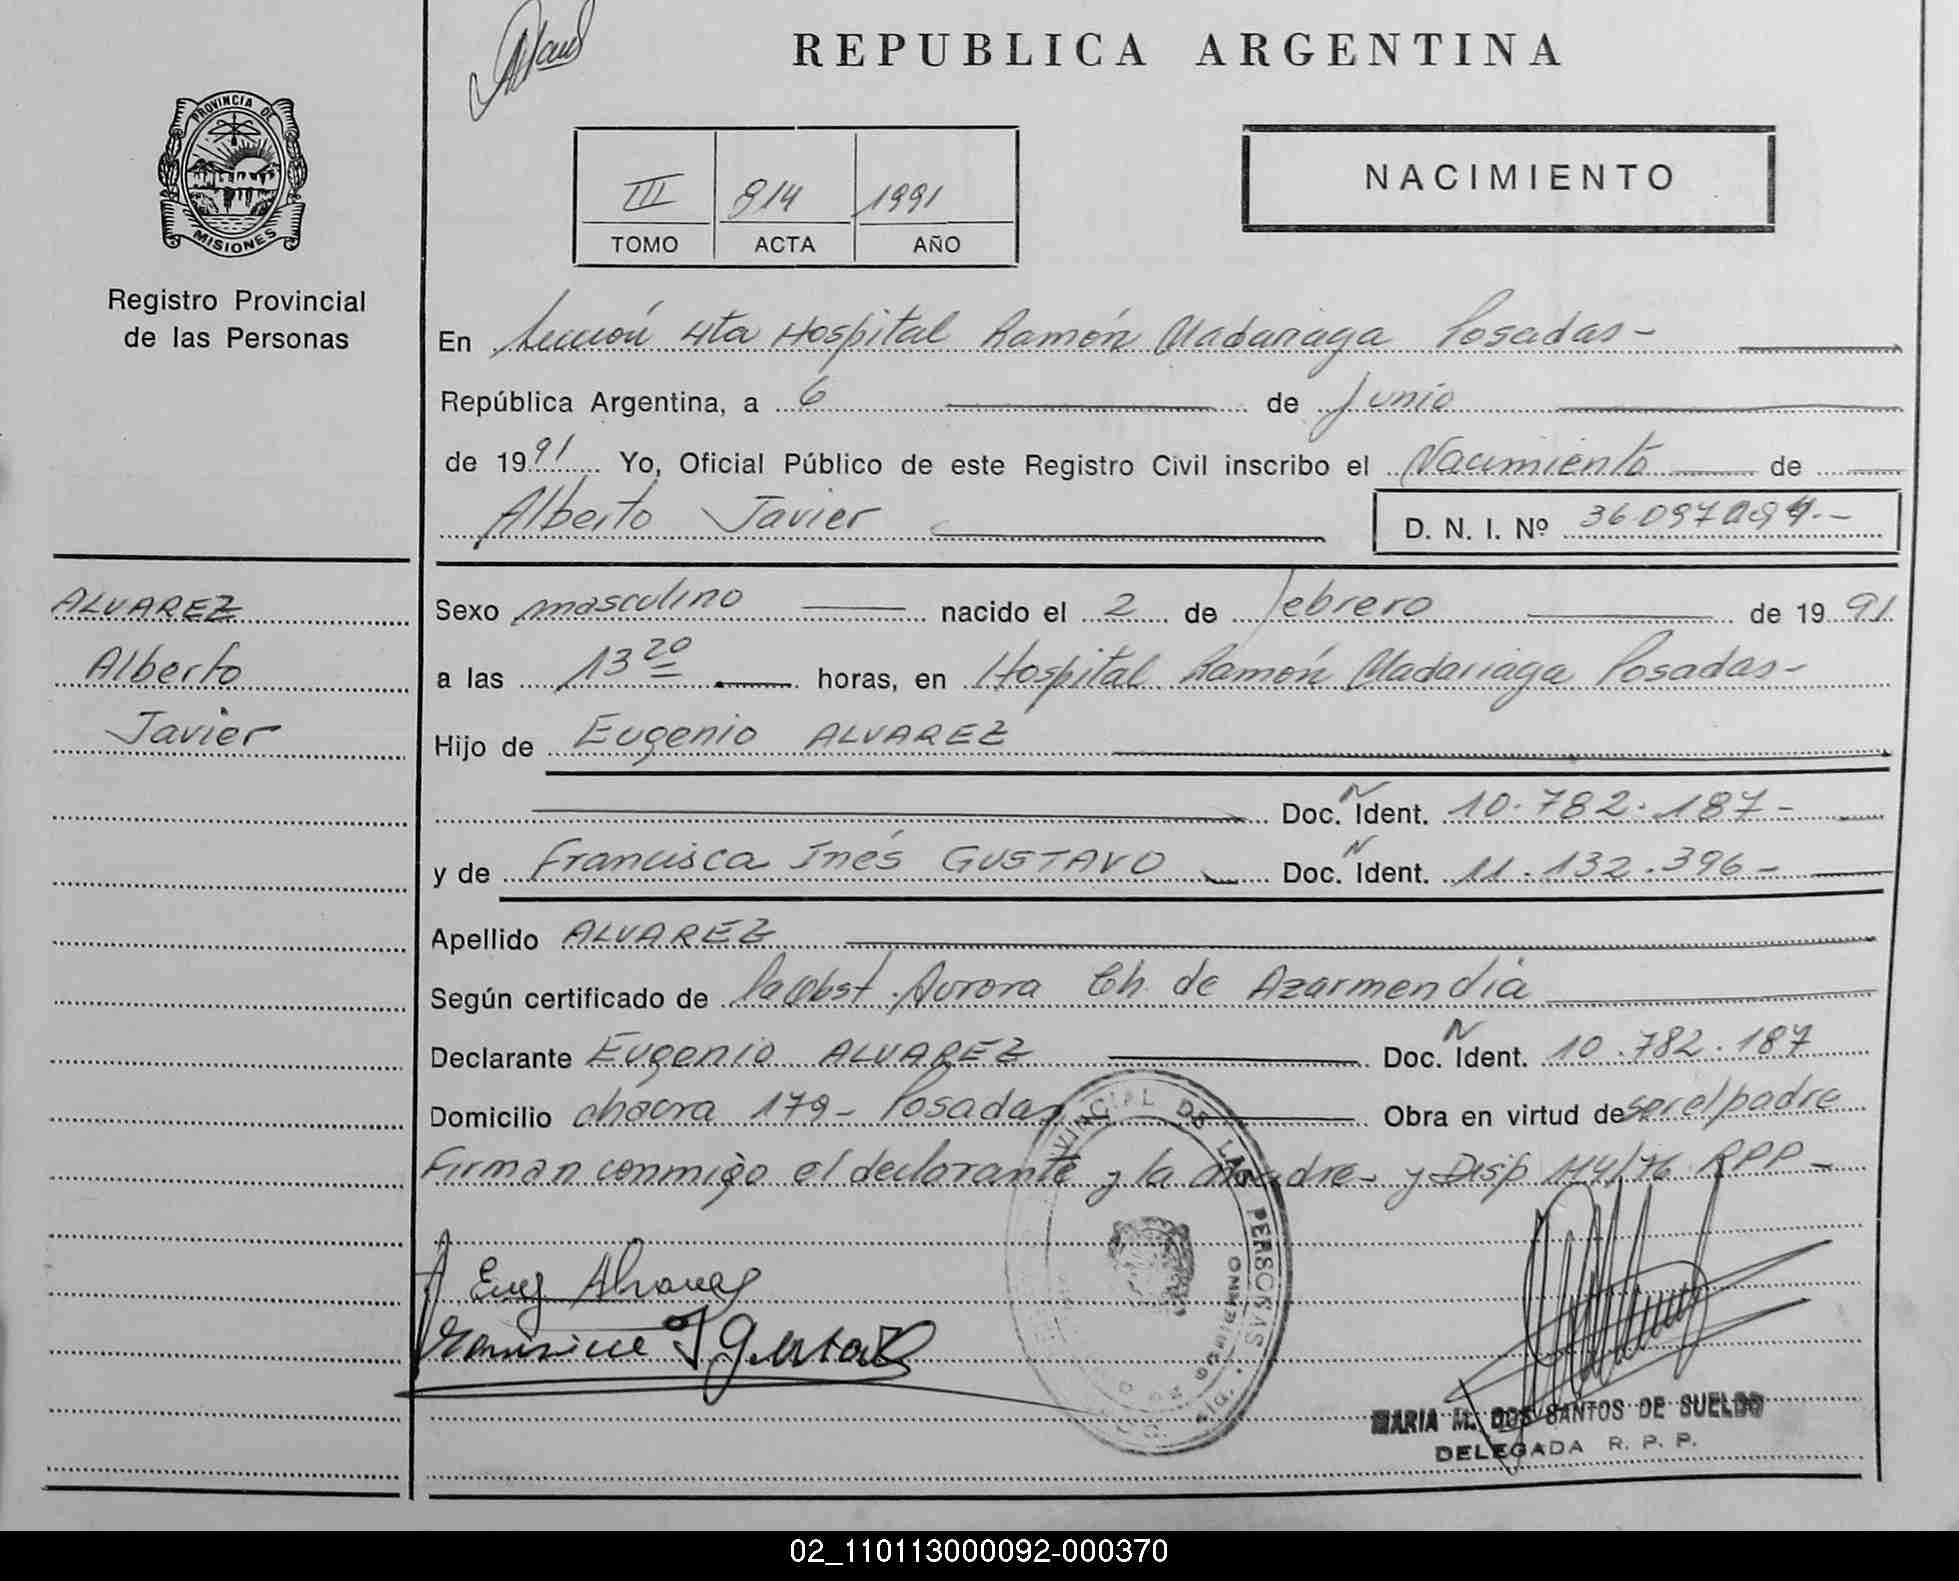 REPUBLICA ARGENTINA
PROVINCIA DE
MISIONES
Registro Provincial
de las Personas
III 914 1991
TOMO ACTA AÑO
NACIMIENTO
En Sección 4ta Hospital Ramón Madariaga Posadas-
República Argentina, a 6 de junio
de 1991 Yo, Oficial Público de este Registro Civil inscribo el Nacimiento de
Alberto Javier
D. N. I. Nº
ALVAREZ
Alberto
Javier
Sexo masculino nacido el 2 de febrero de 1991
a las 13 20 horas, en Hospital Ramón Madariaga Posadas-
Hijo de Eugenio ALVAREZ
Doc. N Ident. 10.782.187-
y de Francisca Inés GUSTAVO Doc. N Ident. 11.132.396-
Apellido ALVAREZ
Según certificado de Aurora Ch. de Azarmendia
Declarante Eugenio ALVAREZ Doc. N Ident. 10.782.187
Domicilio chacra 179- Posadas Obra en virtud de ser el padre
Firman conmigo el declarante y la madre- y Disp 114/76 RPP-
VINCIAL DE LAS PERSONAS
Eug Alvarez
MARIA M. DOS SANTOS DE SUELDO
DELEGADA R. P. P.
02_110113000092-000370